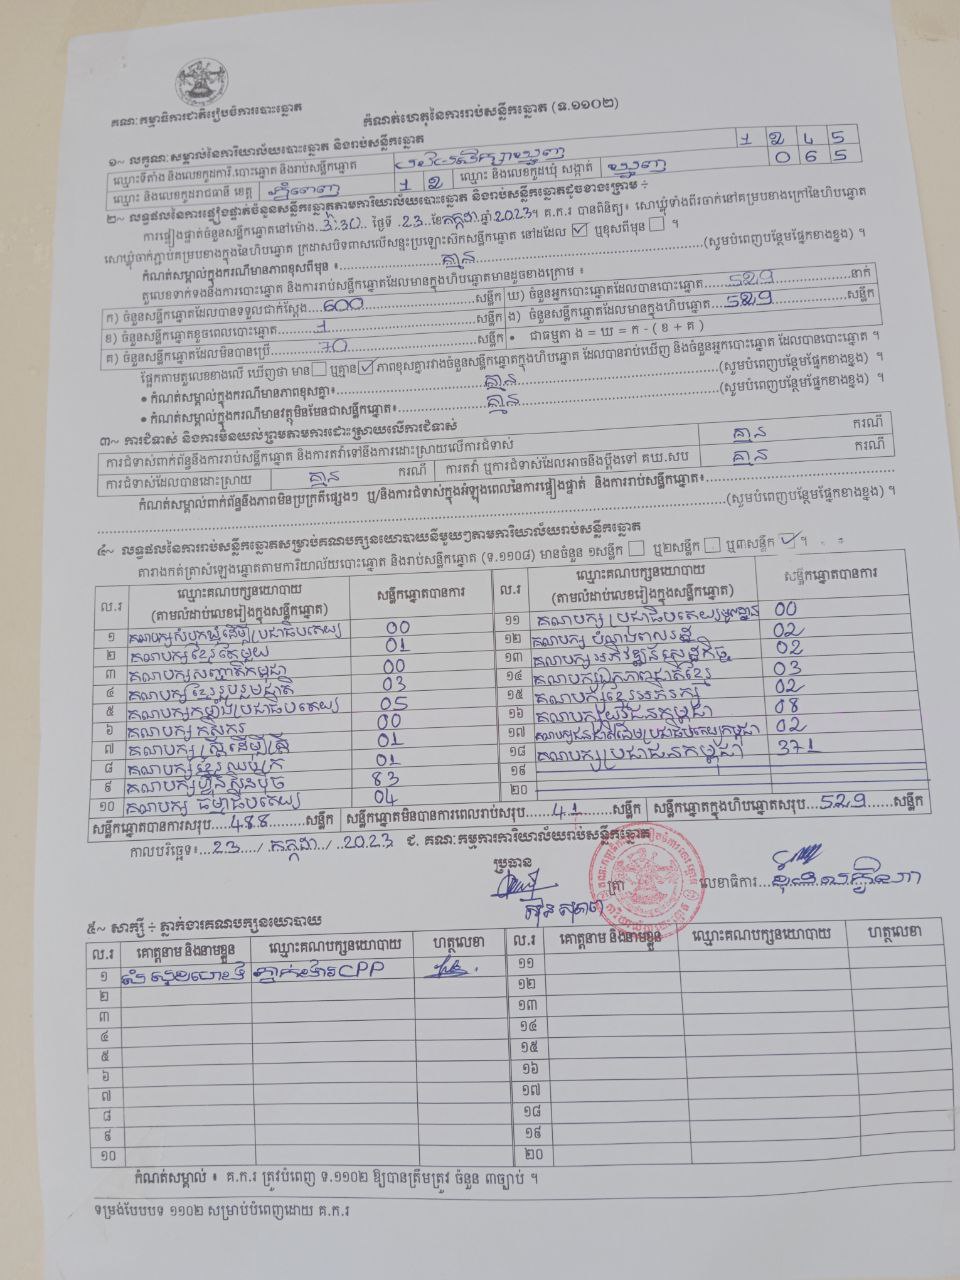 គណៈកម្មាធិការជាតិរៀបចំការបោះឆ្នោត
កំណត់ហេតុនៃការរាប់សន្លឹកឆ្នោត (ទ.១១០២)
១~ លក្ខណៈសម្គាល់នៃការិយាល័យបោះឆ្នោត និងរាប់សន្លឹកឆ្នោត
ឈ្មោះទីតាំង និងលេខកូដការិ.បោះឆ្នោត និងរាប់សន្លឹកឆ្នោត 1 2 4 5
ឈ្មោះ និងលេខកូដរាជធានី ខេត្ត ភ្នំពេញ 1 2 ឈ្មោះ និងលេខកូដឃុំ សង្កាត់ 0 6 5
២~ លទ្ធផលនៃការផ្ទៀងផ្ទាត់ចំនួនសន្លឹកឆ្នោតតាមការិយាល័យបោះឆ្នោត និងរាប់សន្លឹកឆ្នោតដូចខាងក្រោម ÷
ការផ្ទៀងផ្ទាត់ចំនួនសន្លឹកឆ្នោតនៅម៉ោង 3:30 ថ្ងៃទី 23 ខែ កក្កដា ឆ្នាំ 2023។ គ.ក.រ បានពិនិត្យ៖ សោឃ្លុំទាំងពីរចាក់នៅគម្របខាងក្រៅនៃហិបឆ្នោត
សោឃ្លុំចាក់ភ្ជាប់គម្របខាងក្នុងនៃហិបឆ្នោត ក្រដាសបិទពាសលើសន្ទះប្រឡោះសិកសន្លឹកឆ្នោត នៅដដែល ☑ ឬខុសពីមុន ☐ ។
កំណត់សម្គាល់ក្នុងករណីមានភាពខុសពីមុន ៖ គ្មាន (សូមបំពេញបន្ថែមផ្នែកខាងខ្នង) ។
តួលេខទាក់ទងនឹងការបោះឆ្នោត និងការរាប់សន្លឹកឆ្នោតដែលមានក្នុងហិបឆ្នោតមានដូចខាងក្រោម ៖
ក) ចំនួនសន្លឹកឆ្នោតដែលបានទទួលជាក់ស្តែង 600 សន្លឹក ឃ) ចំនួនអ្នកបោះឆ្នោតដែលបានបោះឆ្នោត 529 នាក់
ខ) ចំនួនសន្លឹកឆ្នោតខូចពេលបោះឆ្នោត 1 សន្លឹក ង) ចំនួនសន្លឹកឆ្នោតដែលមានក្នុងហិបឆ្នោត 529 សន្លឹក
គ) ចំនួនសន្លឹកឆ្នោតដែលមិនបានប្រើ 70 សន្លឹក • ជាធម្មតា ង = ឃ = ក - ( ខ + គ )
ផ្អែកតាមតួលេខខាងលើ ឃើញថា មាន ☐ ឬគ្មាន ☑ ភាពខុសគ្នារវាងចំនួនសន្លឹកឆ្នោតក្នុងហិបឆ្នោត ដែលបានរាប់ឃើញ និងចំនួនអ្នកបោះឆ្នោត ដែលបានបោះឆ្នោត ។
• កំណត់សម្គាល់ក្នុងករណីមានភាពខុសគ្នា៖ គ្មាន (សូមបំពេញបន្ថែមផ្នែកខាងខ្នង) ។
• កំណត់សម្គាល់ក្នុងករណីមានវត្ថុមិនមែនជាសន្លឹកឆ្នោត៖ គ្មាន (សូមបំពេញបន្ថែមផ្នែកខាងខ្នង) ។
៣~ ការជំទាស់ និងការមិនយល់ព្រមតាមការដោះស្រាយលើការជំទាស់
ការជំទាស់ពាក់ព័ន្ធនឹងការរាប់សន្លឹកឆ្នោត និងការតវ៉ាទៅនឹងការដោះស្រាយលើការជំទាស់ គ្មាន ករណី
ការជំទាស់ដែលបានដោះស្រាយ គ្មាន ករណី ការតវ៉ា ឬការជំទាស់ដែលអាចនឹងប្តឹងទៅ គឃ.សប គ្មាន ករណី
កំណត់សម្គាល់ពាក់ព័ន្ធនឹងភាពមិនប្រក្រតីផ្សេងៗ ឬ/និងការជំទាស់ក្នុងអំឡុងពេលនៃការផ្ទៀងផ្ទាត់ និងការរាប់សន្លឹកឆ្នោត៖
(សូមបំពេញបន្ថែមផ្នែកខាងខ្នង) ។
៤~ លទ្ធផលនៃការរាប់សន្លឹកឆ្នោតសម្រាប់គណបក្សនយោបាយនីមួយៗតាមការិយាល័យរាប់សន្លឹកឆ្នោត
តារាងកត់ត្រាសំឡេងឆ្នោតតាមការិយាល័យបោះឆ្នោត និងរាប់សន្លឹកឆ្នោត (ទ.១១០៨) មានចំនួន ១សន្លឹក ☐ ឬ២សន្លឹក ☐ ឬ៣សន្លឹក ☑ ។
ល.រ ឈ្មោះគណបក្សនយោបាយ (តាមលំដាប់លេខរៀងក្នុងសន្លឹកឆ្នោត) សន្លឹកឆ្នោតបានការ ល.រ ឈ្មោះគណបក្សនយោបាយ (តាមលំដាប់លេខរៀងក្នុងសន្លឹកឆ្នោត) សន្លឹកឆ្នោតបានការ
១ គណបក្សសំបុកឃ្មុំដើម្បីប្រជាធិបតេយ្យ 00
២ គណបក្សខ្មែរតែមួយ 01
៣ គណបក្សសញ្ជាតិកម្ពុជា 00
៤ គណបក្សខ្មែររួបរួមជាតិ 03
៥ គណបក្សកម្លាំងប្រជាធិបតេយ្យ 05
៦ គណបក្សកសិករ 00
៧ គណបក្សស្ត្រីដើម្បីស្ត្រី 01
៨ គណបក្សខ្មែរឈប់ក្រ 01
៩ គណបក្សហ៊្វុនស៊ិនប៉ិច 83
១០ គណបក្ស ធម្មាធិបតេយ្យ 04
១១ គណបក្ស ប្រជាធិបតេយ្យមូលដ្ឋាន 00
១២ គណបក្ស បំណុំងពលរដ្ឋ 02
១៣ គណបក្សអភិវឌ្ឍន៍សេដ្ឋកិច្ច 02
១៤ គណបក្សឯកភាពជាតិខ្មែរ 03
១៥ គណបក្សខ្មែរអភិរក្ស 02
១៦ គណបក្សយុវជនកម្ពុជា 08
១៧ គណបក្សជនជាតិដើមប្រជាធិបតេយ្យកម្ពុជា 02
១៨ គណបក្សប្រជាជនកម្ពុជា 371
១៩
២០
សន្លឹកឆ្នោតបានការសរុប 488 សន្លឹក សន្លឹកឆ្នោតមិនបានការពេលរាប់សរុប 41 សន្លឹក សន្លឹកឆ្នោតក្នុងហិបឆ្នោតសរុប 529 សន្លឹក
កាលបរិច្ឆេទ៖ 23 / កក្កដា / 2023 ជ. គណៈកម្មការការិយាល័យរាប់សន្លឹកឆ្នោត
ប្រធាន
ត្រា
លេខាធិការ
៥~ សាក្សី ÷ ភ្នាក់ងារគណបក្សនយោបាយ
ល.រ គោត្តនាម និងនាមខ្លួន ឈ្មោះគណបក្សនយោបាយ ហត្ថលេខា ល.រ គោត្តនាម និងនាមខ្លួន ឈ្មោះគណបក្សនយោបាយ ហត្ថលេខា
១ ភ្នាក់ងារCPP ១១
២ ១២
៣ ១៣
៤ ១៤
៥ ១៥
៦ ១៦
៧ ១៧
៨ ១៨
៩ ១៩
១០ ២០
កំណត់សម្គាល់ ៖ គ.ក.រ ត្រូវបំពេញ ទ.១១០២ ឱ្យបានត្រឹមត្រូវ ចំនួន ៣ច្បាប់ ។
ទម្រង់បែបបទ ១១០២ សម្រាប់បំពេញដោយ គ.ក.រ